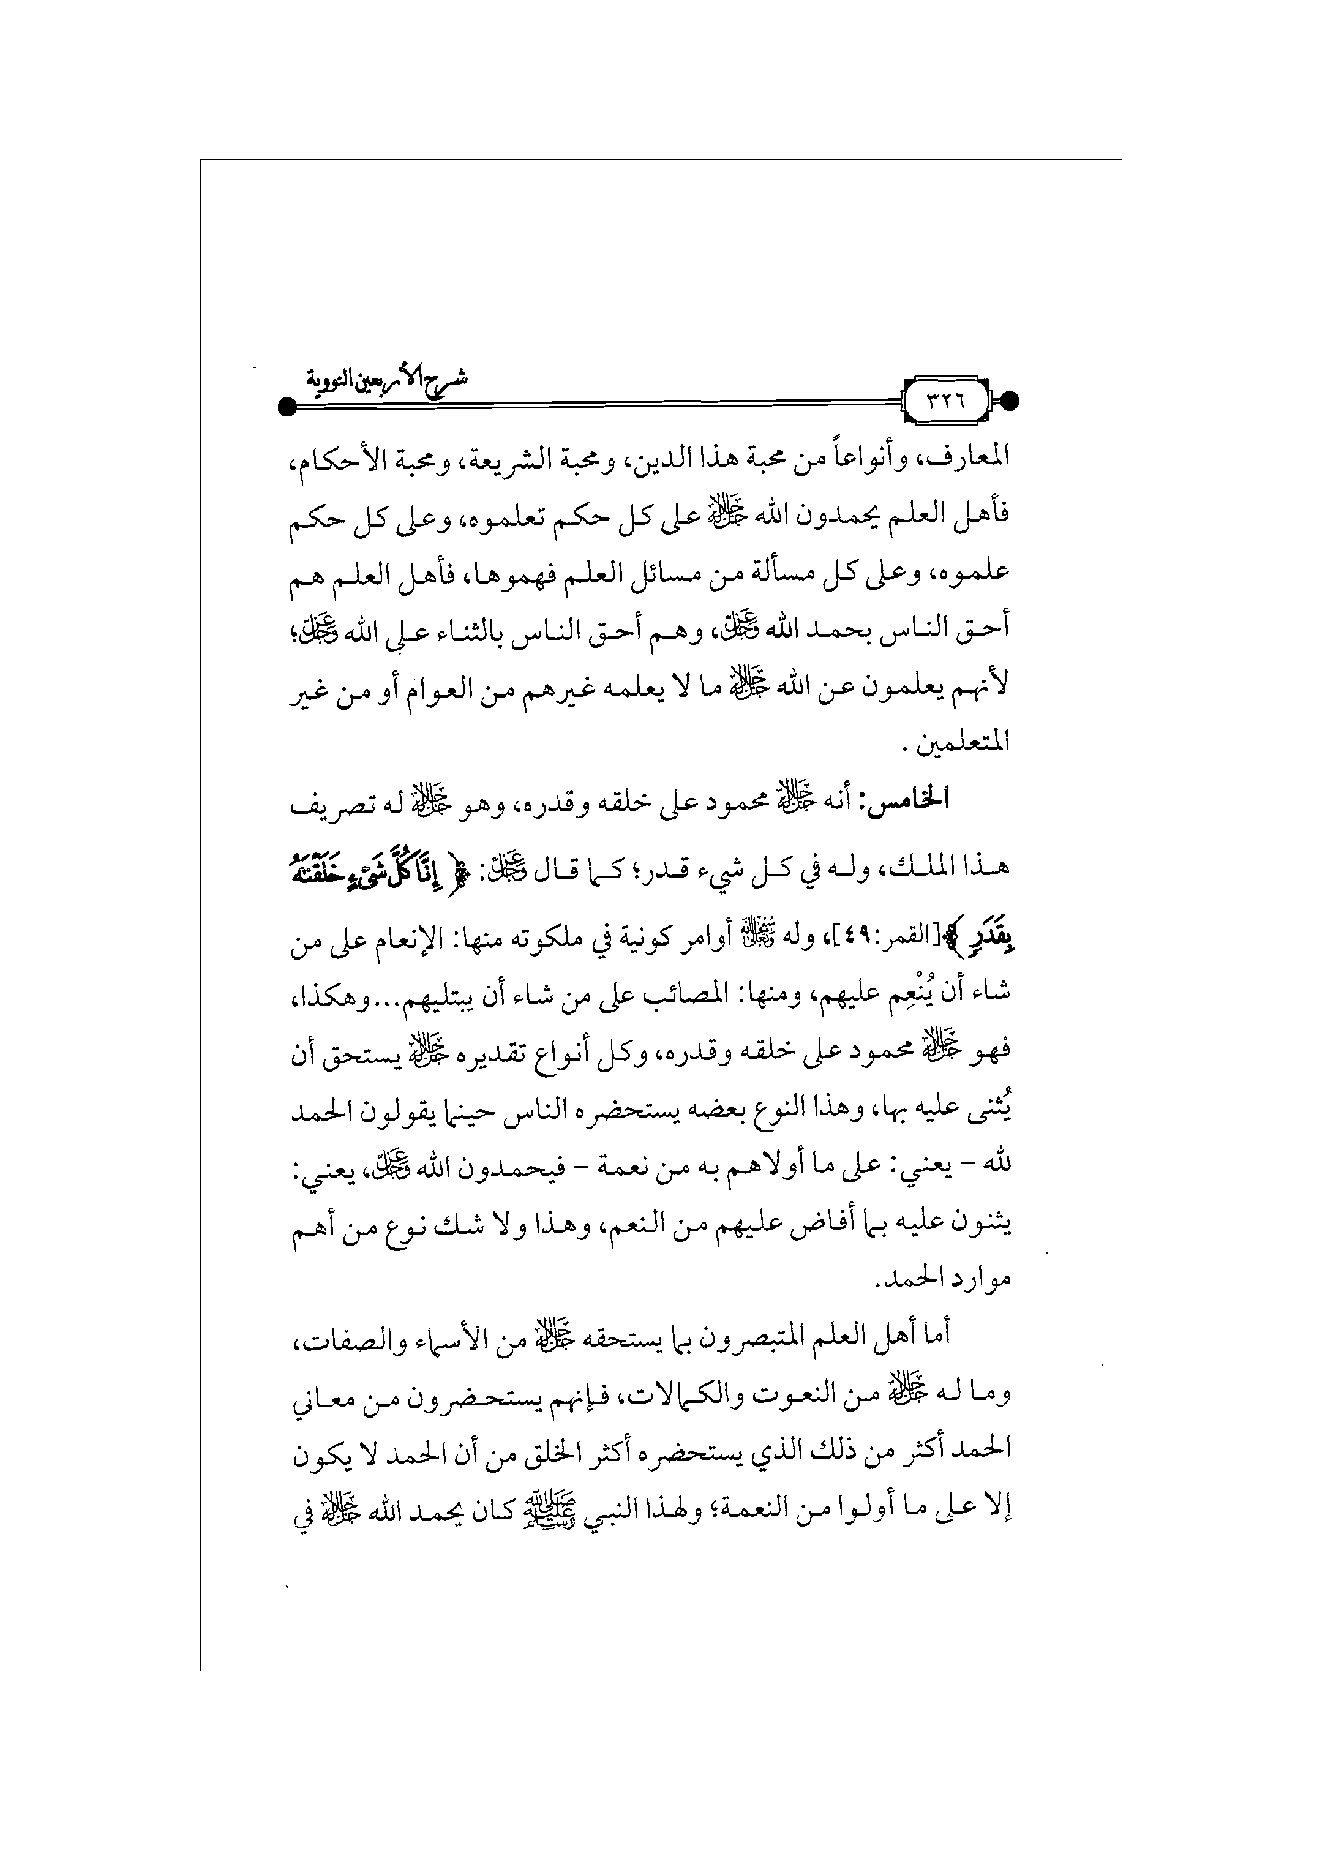 شرح الأربعين النووية
٣٢٦
المعارف، وأنواعاً من محبة هذا الدين، ومحبة الشريعة، ومحبة الأحكام،
فأهل العلم يحمدون الله ﷻ على كل حكم تعلموه، وعلى كل حكم
علموه، وعلى كل مسألة من مسائل العلم فهموها، فأهل العلم هم
أحق الناس بحمد الله عز وجل، وهم أحق الناس بالثناء على الله عز وجل؛
لأنهم يعلمون عن الله ﷻ ما لا يعلمه غيرهم من العوام أو من غير
المتعلمين .
الخامس: أنه ﷻ محمود على خلقه وقدره، وهو ﷻ له تصريف
هذا الملك، وله في كل شيء قدر؛ كما قال عز وجل: ﴿ إِنَّا كُلَّ شَيْءٍ خَلَقْنَاهُ
بِقَدَرٍ ﴾[القمر:٤٩]، وله سبحانه أوامر كونية في ملكوته منها: الإنعام على من
شاء أن يُنْعِم عليهم، ومنها: المصائب على من شاء أن يبتليهم...وهكذا،
فهو ﷻ محمود على خلقه وقدره، وكل أنواع تقديره ﷻ يستحق أن
يُثنى عليه بها، وهذا النوع بعضه يستحضره الناس حينما يقولون الحمد
لله – يعني: على ما أولاهم به من نعمة – فيحمدون الله عز وجل، يعني:
يثنون عليه بما أفاض عليهم من النعم، وهذا ولا شك نوع من أهم
موارد الحمد.
أما أهل العلم المتبصرون بما يستحقه ﷻ من الأسماء والصفات،
وما له ﷻ من النعوت والكمالات، فإنهم يستحضرون من معاني
الحمد أكثر من ذلك الذي يستحضره أكثر الخلق من أن الحمد لا يكون
إلا على ما أولوا من النعمة؛ ولهذا النبي ﷺ كان يحمد الله ﷻ في